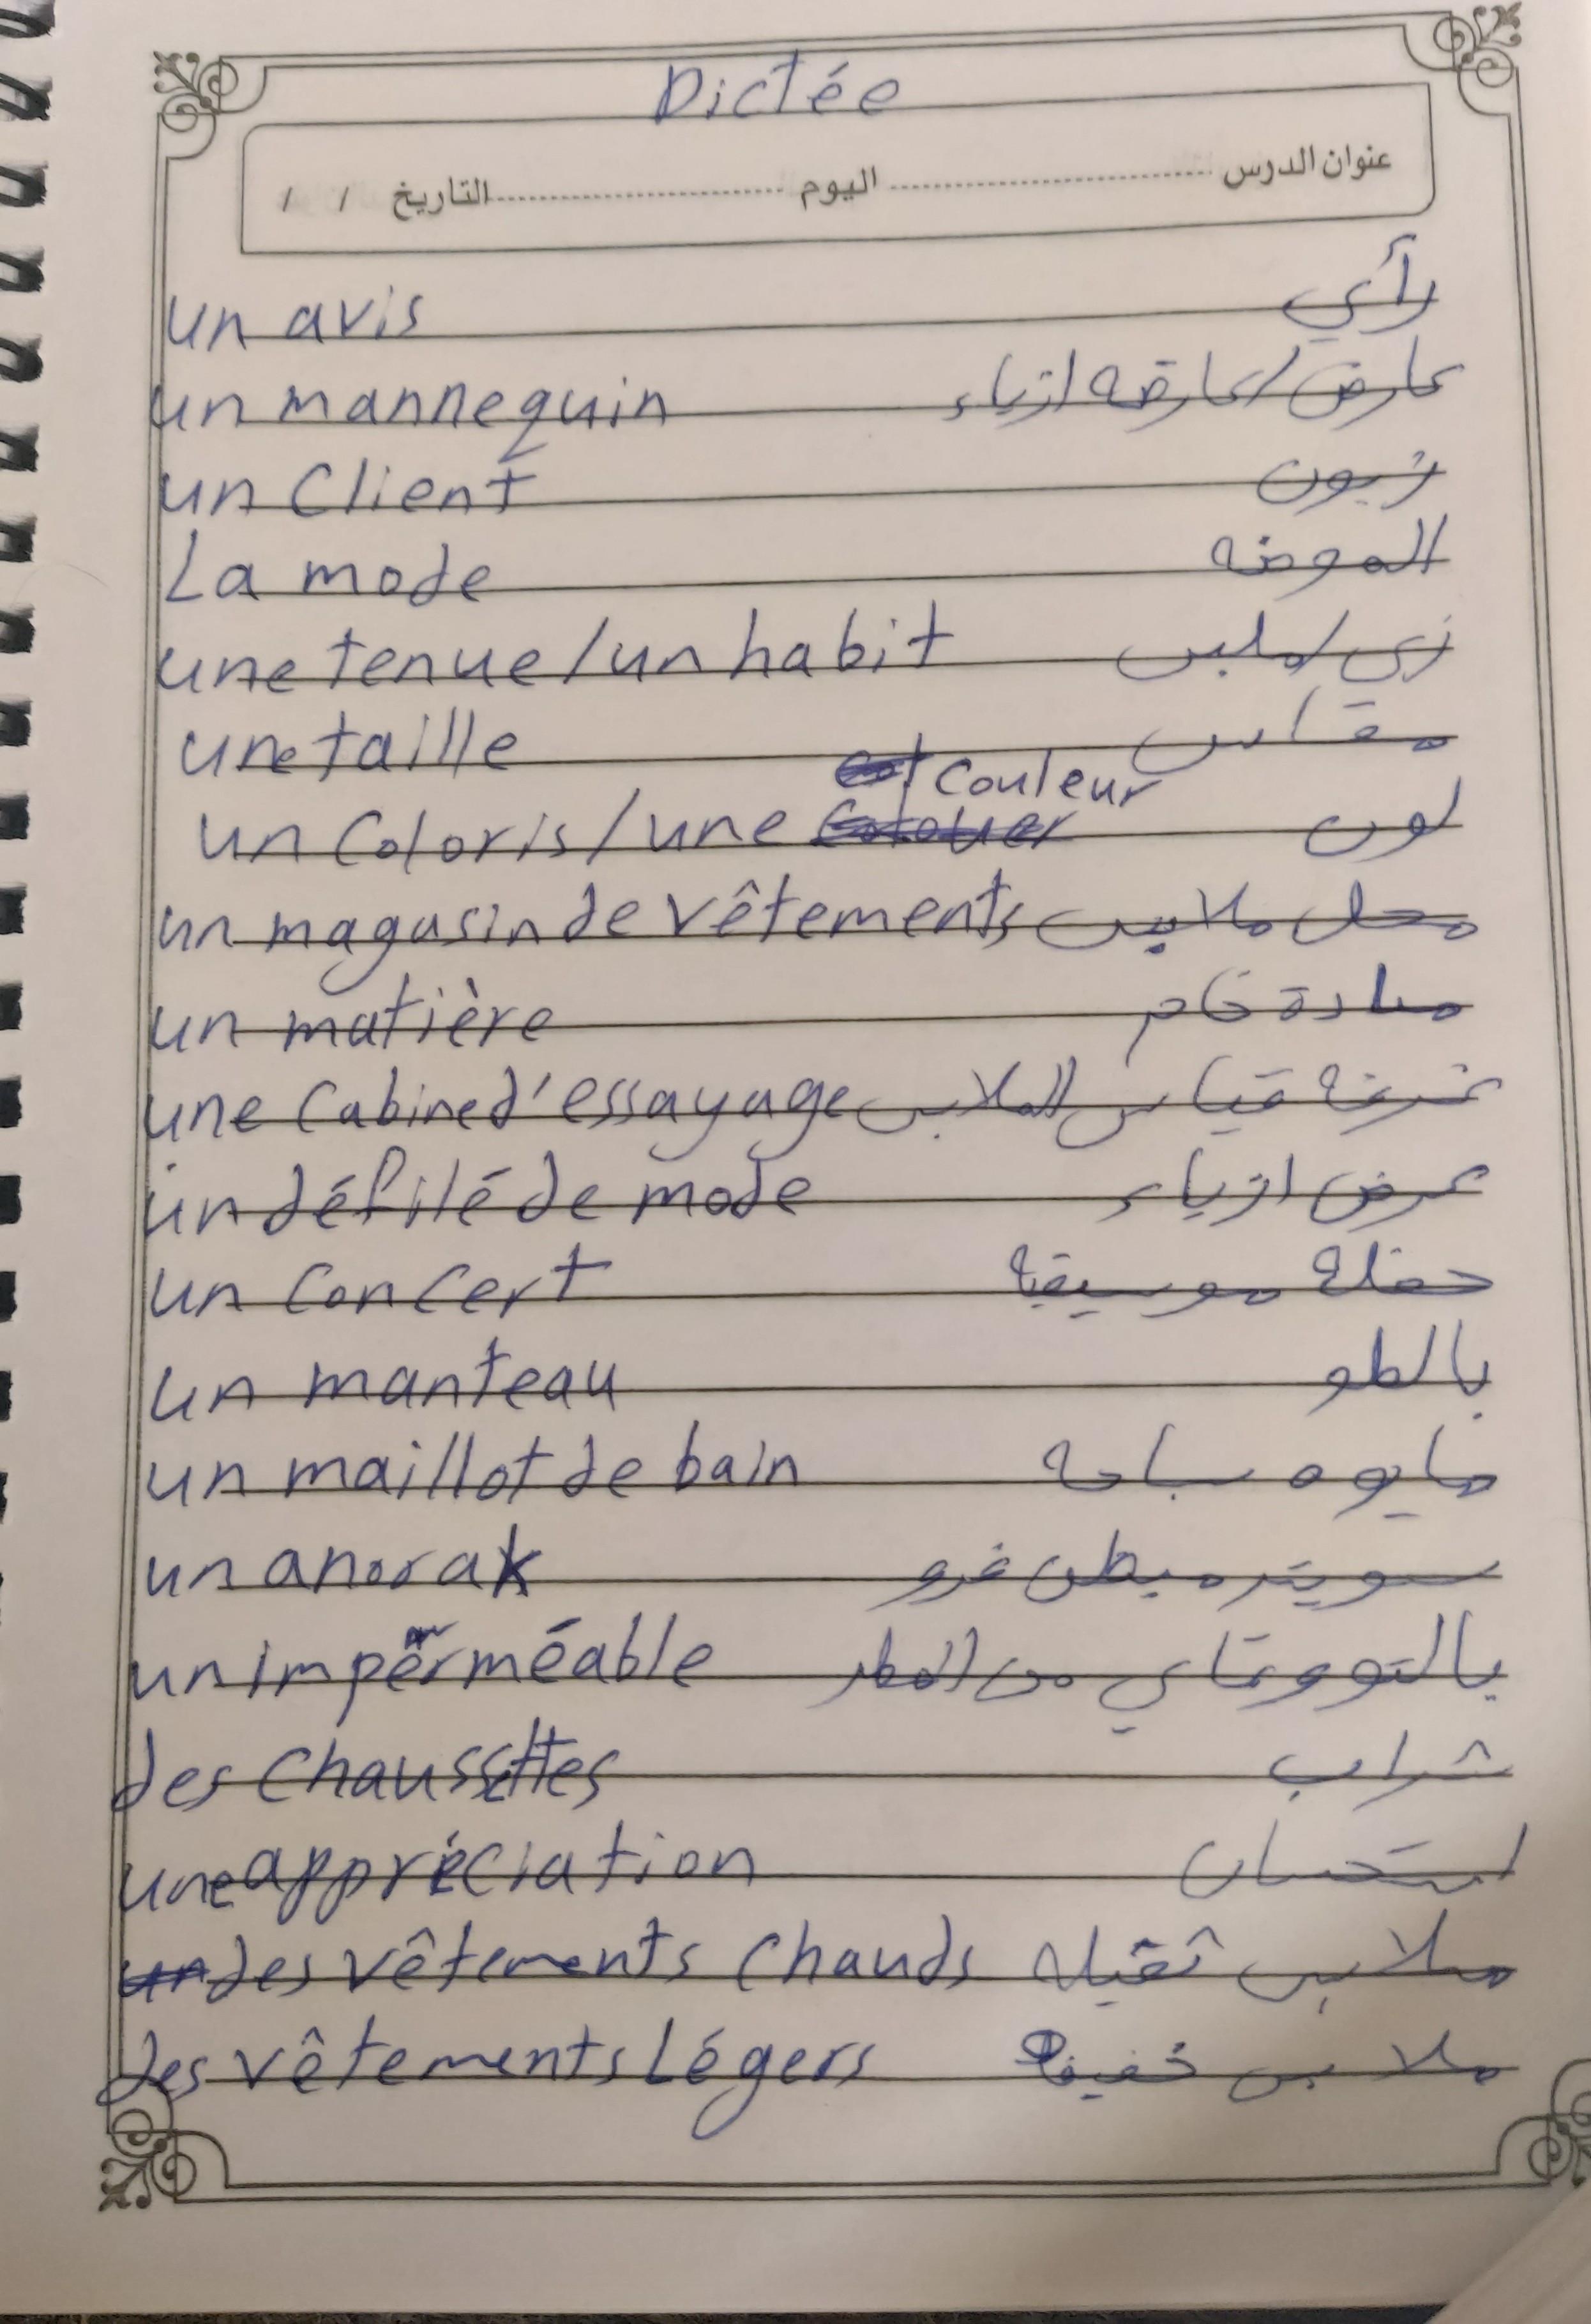 Dictée
عنوان الدرس ........ اليوم ........ التاريخ / /
un avis رأي
un mannequin عارض / عارضه ازياء
un client زبون
La mode الموضه
une tenue / un habit زي / ملبس
une taille مقاس
un coloris / une couleur لون
un magasin de vêtements محل ملابس
un matière مادة خام
une cabine d'essayage غرفة قياس الملابس
un défilé de mode عرض ازياء
un concert حفلة موسيقية
un manteau بالطو
un maillot de bain مايوه سباحه
un anorak سويتر مبطن فرو
un imperméable بالتو وقاي من المطر
des chaussettes شراب
une appréciation استحسان
des vêtements chauds ملابس ثقيله
des vêtements légers ملابس خفيفة